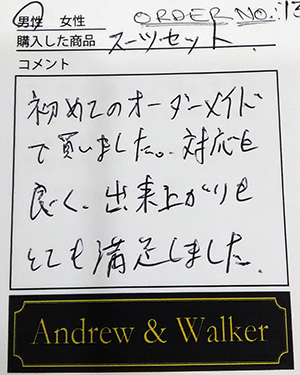 男性 女性 ORDER NO. 13
購入した商品 スーツセット
コメント
初めてのオーダーメイド
で買いました。対応も
良く、出来上がりも
とても満足しました。
Andrew & Walker